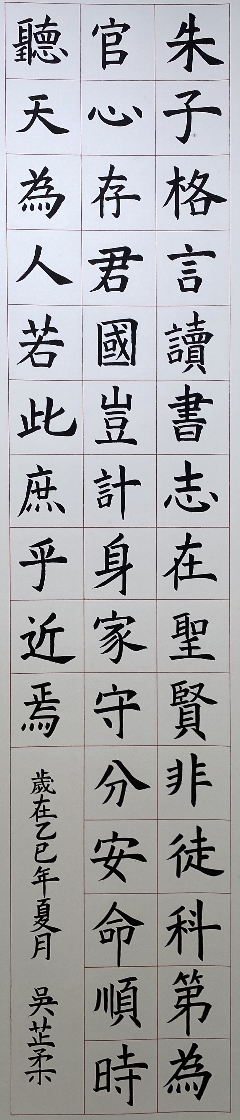 朱子格言讀書志在聖賢非徒科第為
官心存君國豈計身家守分安命順時
聽天為人若此庶乎近焉
歲在乙巳年夏月 吳芷柔